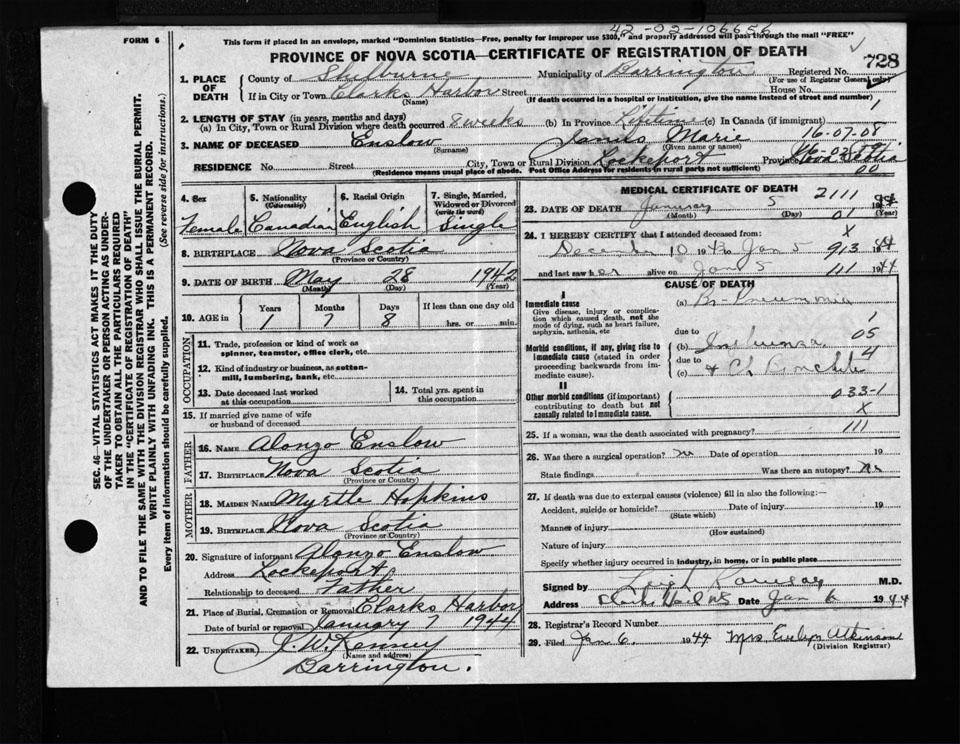 42-02-106656
FORM 6
This form if placed in an envelope, marked "Dominion Statistics—Free, penalty for improper use $300," and properly addressed will pass through the mail "FREE"
PROVINCE OF NOVA SCOTIA—CERTIFICATE OF REGISTRATION OF DEATH
728
1. PLACE OF DEATH
County of Shelburne Municipality of Barrington Registered No.
(For use of Registrar General only)
If in City or Town Clarks Harbor Street House No.
(Name) (If death occurred in a hospital or institution, give the name instead of street and number)
1
2. LENGTH OF STAY (in years, months and days)
(a) In City, Town or Rural Division where death occurred 8 weeks (b) In Province Lifetime (c) In Canada (if immigrant)
16-07-08
3. NAME OF DECEASED Enslow Marie
(Surname) (Given name or names)
RESIDENCE No. Street City, Town or Rural Division Lockeport Province Nova Scotia
(Residence means usual place of abode. Post Office Address for residents in rural parts not sufficient)
00
4. Sex
Female
5. Nationality (Citizenship)
Canadian
6. Racial Origin
English
7. Single, Married, Widowed or Divorced (write the word)
Single
8. BIRTHPLACE Nova Scotia
(Province or Country)
9. DATE OF BIRTH May 28 1942
(Month) (Day) (Year)
10. AGE in Years Months Days If less than one day old
1 7 8 hrs. or min.
OCCUPATION
11. Trade, profession or kind of work as spinner, teamster, office clerk, etc.
12. Kind of industry or business, as cotton-mill, lumbering, bank, etc.
13. Date deceased last worked at this occupation
14. Total yrs. spent in this occupation
15. If married give name of wife or husband of deceased
FATHER
16. NAME Alonzo Enslow
17. BIRTHPLACE Nova Scotia
(Province or Country)
MOTHER
18. MAIDEN NAME Myrtle Hopkins
19. BIRTHPLACE Nova Scotia
(Province or Country)
20. Signature of informant Alonzo Enslow
Address Lockeport
Relationship to deceased Father
21. Place of Burial, Cremation or Removal Clarks Harbor
Date of burial or removal January 7 1944
22. UNDERTAKER J. W. Kenney
(Name and address)
Barrington.
MEDICAL CERTIFICATE OF DEATH
2111
23. DATE OF DEATH January 5 1944
(Month) (Day) (Year)
01
24. I HEREBY CERTIFY that I attended deceased from:
X
December 10 1943 to Jan 5 1944
913
and last saw her alive on Jan 5 1944
111
CAUSE OF DEATH
I
Immediate cause
Give disease, injury or complication which caused death, not the mode of dying, such as heart failure, asphyxia, asthenia, etc
(a) Br-Pneumonia
due to
1
Morbid conditions, if any, giving rise to immediate cause (stated in order proceeding backwards from immediate cause).
(b) Influenza
05
due to
4
(c)
II
Other morbid conditions (if important) contributing to death but not causally related to immediate cause.
033-1
X
111
25. If a woman, was the death associated with pregnancy?
26. Was there a surgical operation? no Date of operation 19
State findings Was there an autopsy? no
27. If death was due to external causes (violence) fill in also the following:—
Accident, suicide or homicide? Date of injury 19
(State which)
Manner of injury
(How sustained)
Nature of injury
Specify whether injury occurred in industry, in home, or in public place
Signed by Leigh M.D.
Address Date Jan 6 1944
28. Registrar's Record Number
29. Filed Jan 6 1944 Mrs. Evelyn Atkinson
(Division Registrar)
SEC. 46—VITAL STATISTICS ACT MAKES IT THE DUTY
OF THE UNDERTAKER OR PERSON ACTING AS UNDER-
TAKER TO OBTAIN ALL THE PARTICULARS REQUIRED
IN THE "CERTIFICATE OF REGISTRATION OF DEATH"
AND TO FILE THE SAME WITH THE DIVISION REGISTRAR WHO SHALL ISSUE THE BURIAL PERMIT.
WRITE PLAINLY WITH UNFADING INK. THIS IS A PERMANENT RECORD.
Every item of information should be carefully supplied. (See reverse side for instructions.)